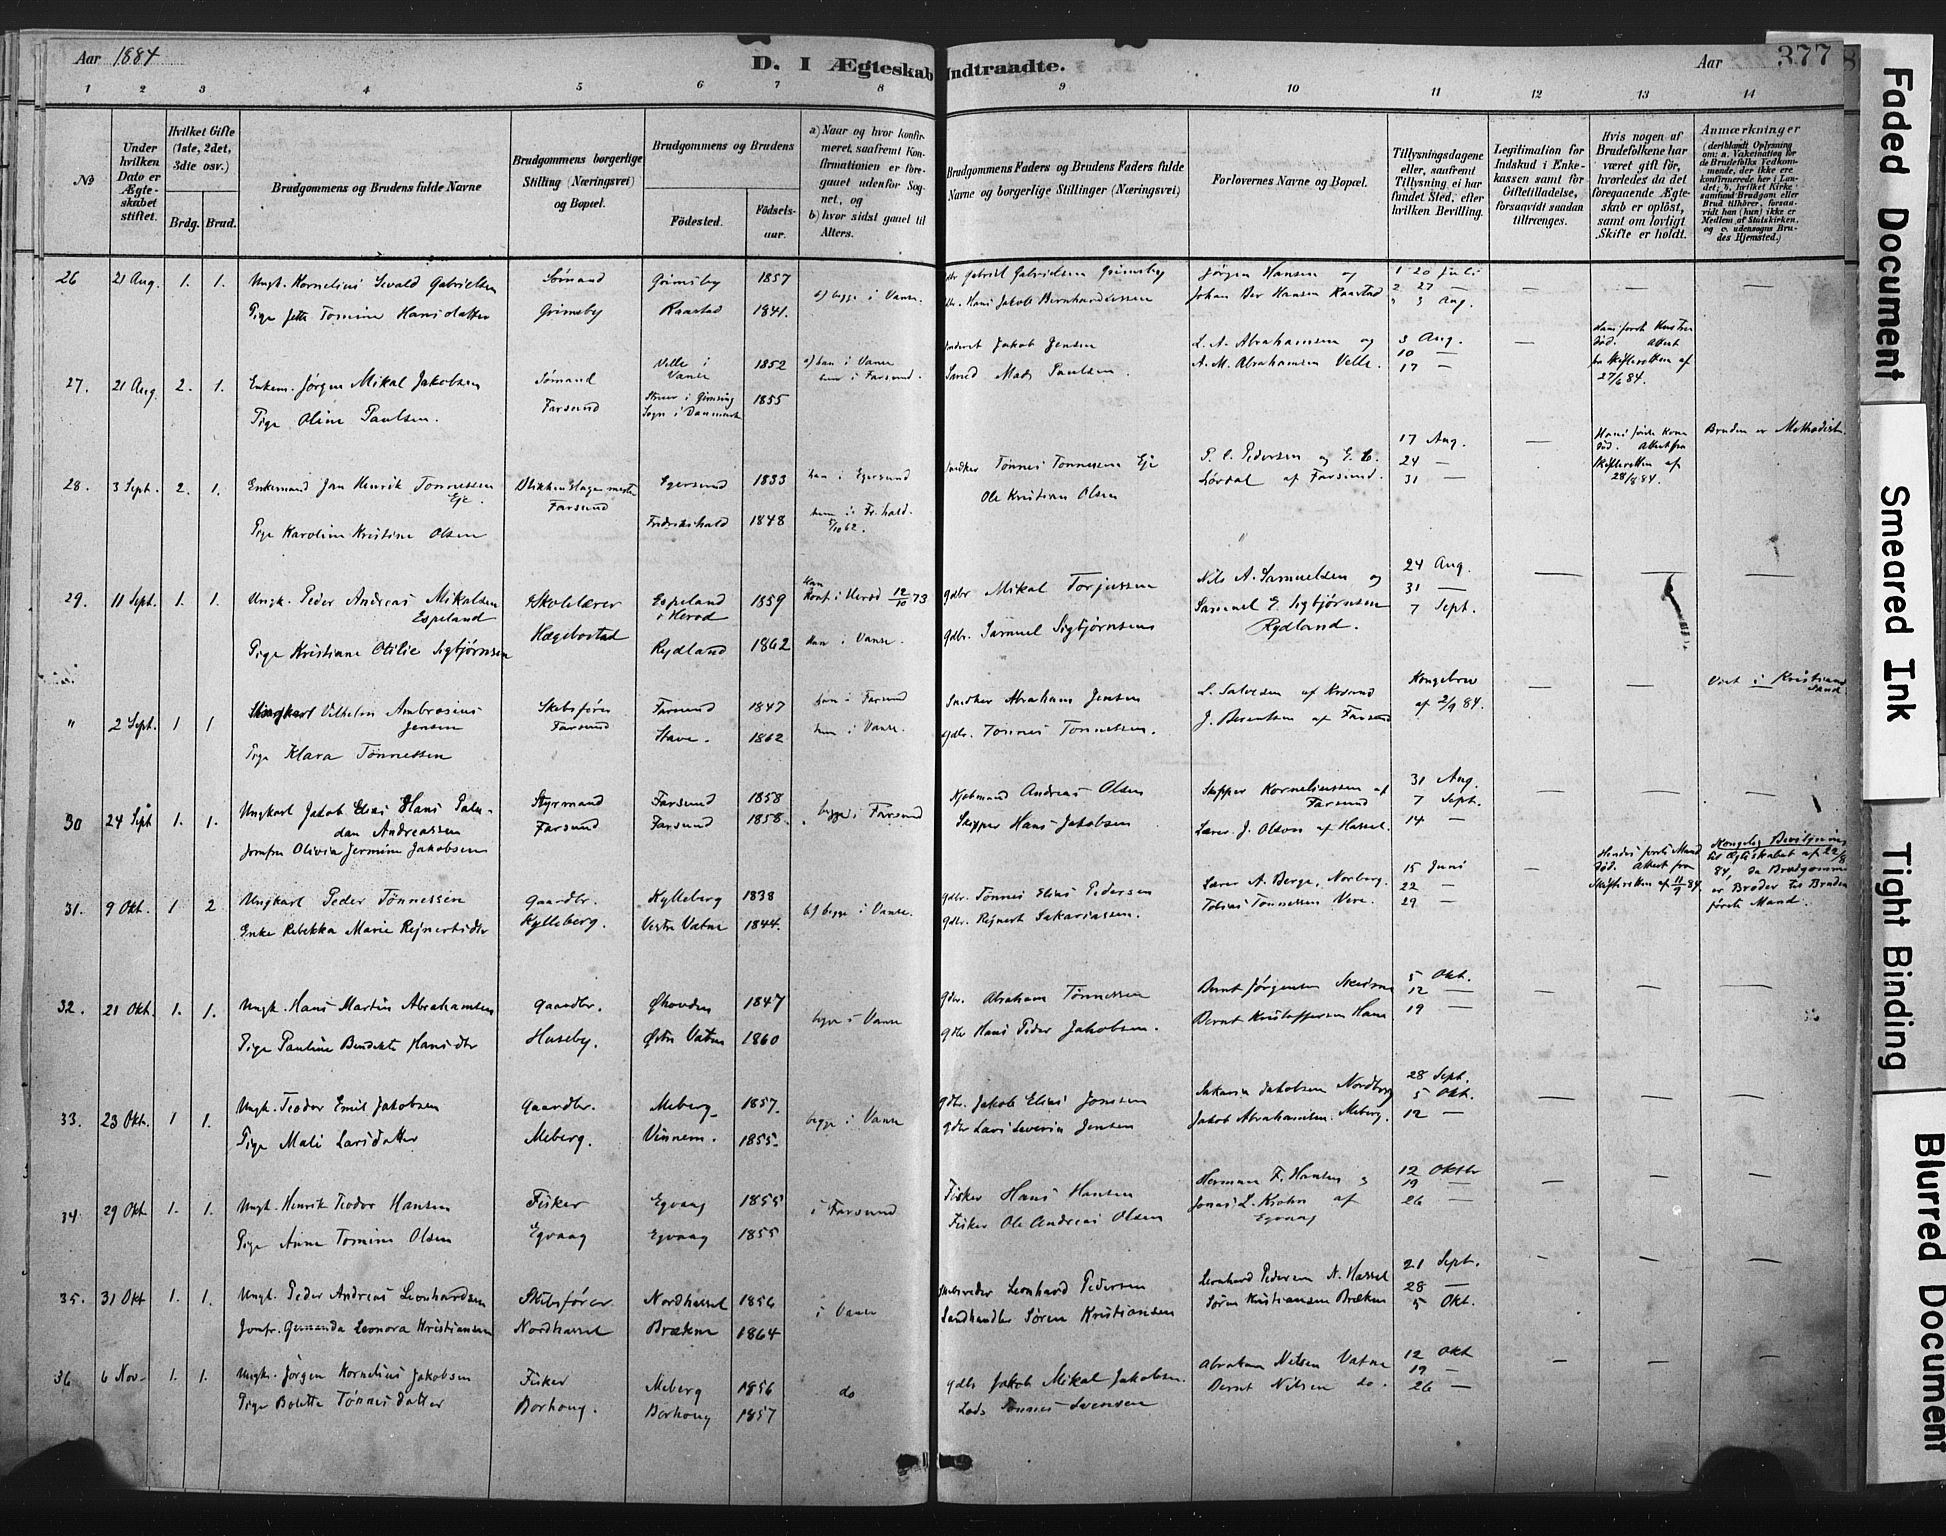 Aar 1884
D. I Ægteskab Indtraadte.
Aar
377
1 2 3 4 5 6 7 8 9 10 11 12 13 14
No
Under hvilken Dato er Ægteskabet stiftet.
Hvilket Gifte (1ste, 2det, 3die osv.)
Brdg. Brud.
Brudgommens og Brudens fulde Navne
Brudgommens borgerlige Stilling (Næringsvei) og Bopæl.
Brudgommens og Brudens
Födested.
Födselsaar.
a) Naar og hvor konfirmeret, saafremt Konfirmationen er foregaaet udenfor Sognet, og
b) hvor sidst gaaet til Alters.
Brudgommens Faders og Brudens Faders fulde Navne og borgerlige Stillinger (Næringsvei)
Forlovernes Navne og Bopæl.
Tillysningsdagene eller, saafremt Tillysning ei har fundet Sted, efter hvilken Bevilling.
Legitimation for Indskud i Enkekassen samt for Giftetilladelse, forsaavidt saadan tiltrænges.
Hvis nogen af Brudefolkene har været gift før, hvorledes da det foregaaende Ægteskab er opløst, samt om lovligt Skifte er holdt.
Anmærkninger
(deriblandt Oplysning om: a. Vakcination for de Brudefolks Vedkommende, der ikke ere konfirmerede her i Landet; b. hvilket Kirkesamfund Brudgom eller Brud tilhører, forsaavidt han (hun) ikke er Medlem af Statskirken, og c. udensogns Brudes Hjemsted.)
26 21 Aug. 1. 1. Ungk. Kornelius Sevald Gabrielsen Sømand Grimsby 1857 Gabriel Gabrielsen Grimsby Jørgen Hansen og 1 20 Juli
Pige Jette Tomine Hansdatter Grimsby Raastad 1841. b) begge i Vanse. Hans Jakob Bernhardussen Johan Ber Hansen Raastad 2 27 —
3 3 Aug.
27. 21 Aug. 2. 1. Enkem. Jørgen Mikal Jakobsen Sømand Velle i Vanse 1852 a) han i Vanse Jakob Jensen L. A. Abrahamsen og 3 Aug. — Hans første Kustru død. Attest fra Skifteretten af 27/6 84.
Pige Oline Paulsen. Farsund Struer i Gimsing Sogn i Danmark 1855 hun i Farsund. Mads Paulsen. A. M. Abrahamsen Velle. 10 —
17 —
28. 3 Sept. 2. 1. Enkemand Jan Henrik Tonnessen Eje. Blikkenslagermester Farsund Egersund 1833 han i Egersund Tønnes Tonnessen Eje P. C. Pedersen og E. C. 17 Aug. — Hans første Kone død. Attest fra Skifteretten af 28/8 84. Bruden er Methodist.
Pige Karoline Kristine Olsen Fredrikshald 1848 hun i Fr.hald. 5/10 62. Ole Kristian Olsen Lövdal af Farsund. 24 —
31 —
29. 11 Sept. 1. 1. Ungk. Peder Andreas Mikalsen Espeland Skolelærer Espeland i Herad 1859 han konf. i Herad 12/10 73 gdbr Mikal Torjussen Nils A. Samuelsen og 24 Aug. — —
Pige Kristiane Otilie Sigbjørnsen Hægebostad Rydland 1862 hun i Vanse. gdbr. Samuel Sigbjørnsen Samuel E. Sigbjørnsen Rydland. 31 —
7 Sept.
" 2 Sept. 1 1 Ungkarl Vilhelm Ambrosius Jensen Skibsfører Farsund Farsund 1847 han i Farsund Snedker Abraham Jensen L. Salvesen af Kongebrev af 2/9 84. —
Pige Klara Tönnessen Stave. 1862 hun i Vanse. gdbr. Tönnes Tönnessen. J. Berentsen af Farsund
30 24 Sept 1. 1. Ungkarl Jakob Elias Hans Paludan Andreassen Styrmand Farsund 1858 begge i Farsund Kjöbmand Andreas Olsen Skipper Korneliussen af Farsund 31 Aug. — — —
Jomfru Olivia Jermine Jakobsen Farsund Farsund 1858. Skipper Hans Jakobsen Lærer J. Olson af Hassel. 7 Sept.
14 —
31. 9 Okt. 1 2 Ungkarl Peder Tönnessen Gaardbr. Kylleberg 1838 b) begge i Vanse. gdbr. Tönnes Elias Pedersen Lærer A. Berge, Norberg. 15 Juni — Hendes første Mand død. Attest fra Skifteretten af 11/9 84. Kongelig Bevilgning til Ægteskabet af 22/8 84, da Brudgommen er Broder til Brudens første Mand.
Enke Rebekka Marie Rejnertsdtr Kylleberg. Vestre Vatne 1844. gdbr. Rejnert Sakariassen. Tobias Tonnessen Vere. 22 —
29 —
32. 21 Okt. 1. 1. Ungk. Hans Martin Abrahamsen Gaardbr. Øhovden 1847 begge i Vanse gdbr. Abraham Tönnessen Bernt Jørgensen 5 Okt. — — —
Pige Pauline Bendikte Hansdtr Huseby. Østre Vatne 1860 gdbr Hans Peder Jakobsen. Bernt Kristoffersen Hana 12 —
19 —
33. 23 Okt. 1 1. Ungk. Teodor Emil Jakobsen Gaardbr. Meberg. 1857. begge i Vanse gdbr. Jakob Elias Jonsen Sakarias Jakobsen Nordberg 28 Sept. — — —
Pige Mali Larsdatter Meberg. Vinnem. 1855. gdbr Lars Severin Jensen Jakob Abrahamsen. Meberg. 5 Okt.
12 —
34. 29 Okt. 1. 1. Ungk. Henrik Teodor Hansen Fisker Egvaag 1855 i Farsund Fisker Hans Hansen Herman F. Hansen og 12 Oktbr — — —
Pige Anne Tomine Olsen Egvaag Egvaag 1855 Fisker Ole Andreas Olsen Jonas L. Krohn af Egvaag 19 —
26 —
35. 31 Okt 1. 1. Ungk. Peder Andreas Leonhardsen Skibsfører Nordhassel 1856 i Vanse Leonhard Pedersen Leonhard Pedersen N. Hassel 21 Sept. — — —
Jomfr. Leonora Kristiansen Nordhassel Brækne 1864 Landhandler Søren Kristiansen Søren Kristiansen Brækne 28 —
5 Okt.
36 6 Nov. 1. 1. Ungk. Jørgen Kornelius Jakobsen Fisker Meberg 1856 do gdbr Jakob Mikal Jakobsen. Abraham Nilsen Vatne 12 Okt — — —
Pige Bolette Tönnesdatter Borhoug. Borhoug 1857 Lods Tönnes Svensen Bernt Nilsen do. 19 —
26 —
Faded Document
Smeared Ink
Tight Binding
Blurred Document